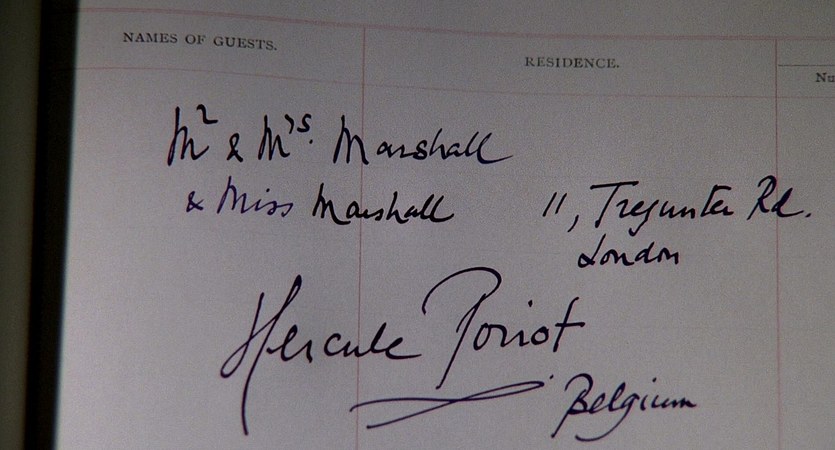 NAMES OF GUESTS.
RESIDENCE.
Nu
Mr & Mrs. Marshall
& Miss Marshall 11, Tregunter Rd.
London
Hercule Poirot
Belgium